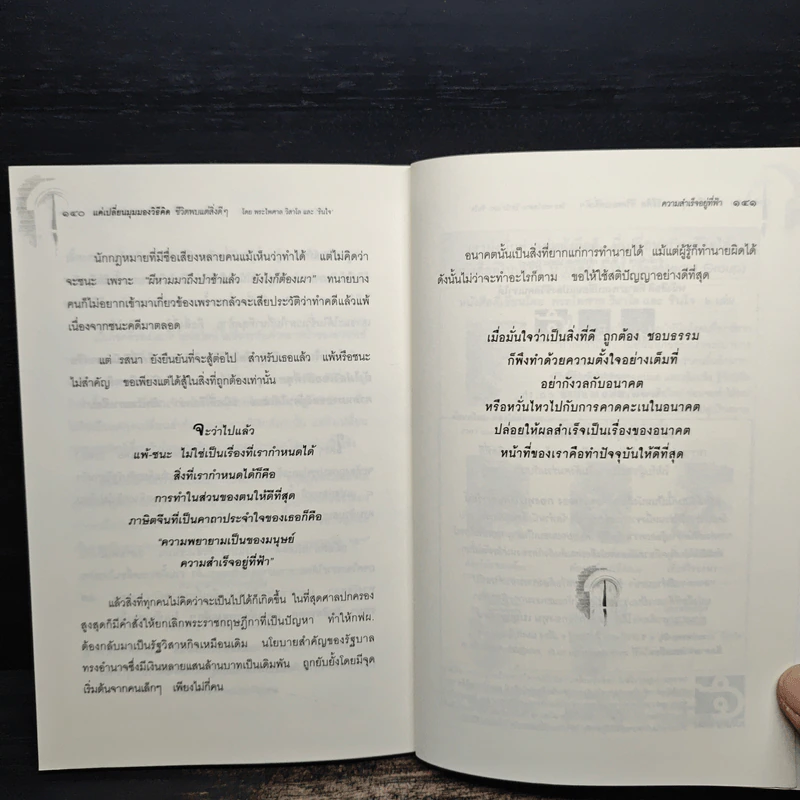 ๑๔๐ แค่เปลี่ยนมุมมองวิธีคิด ชีวิตพบแต่สิ่งดีๆ โดย พระไพศาล วิสาโล และ 'รินใจ'
นักกฎหมายที่มีชื่อเสียงหลายคนแม้เห็นว่าทำได้ แต่ไม่คิดว่า
จะชนะ เพราะ "ผีหามมาถึงป่าช้าแล้ว ยังไงก็ต้องเผา" ทนายบาง
คนก็ไม่อยากเข้ามาเกี่ยวข้องเพราะกลัวจะเสียประวัติว่าทำคดีแล้วแพ้
เนื่องจากชนะคดีมาตลอด
แต่ รสนา ยังยืนยันที่จะสู้ต่อไป สำหรับเธอแล้ว แพ้หรือชนะ
ไม่สำคัญ ขอเพียงแต่ได้สู้ในสิ่งที่ถูกต้องเท่านั้น
จะว่าไปแล้ว
แพ้-ชนะ ไม่ใช่เป็นเรื่องที่เรากำหนดได้
สิ่งที่เรากำหนดได้ก็คือ
การทำในส่วนของตนให้ดีที่สุด
ภาษิตจีนที่เป็นคาถาประจำใจของเธอก็คือ
"ความพยายามเป็นของมนุษย์
ความสำเร็จอยู่ที่ฟ้า"
แล้วสิ่งที่ทุกคนไม่คิดว่าจะเป็นไปได้ก็เกิดขึ้น ในที่สุดศาลปกครอง
สูงสุดก็มีคำสั่งให้ยกเลิกพระราชกฤษฎีกาที่เป็นปัญหา ทำให้กฟผ.
ต้องกลับมาเป็นรัฐวิสาหกิจเหมือนเดิม นโยบายสำคัญของรัฐบาล
ทรงอำนาจซึ่งมีเงินหลายแสนล้านบาทเป็นเดิมพัน ถูกยับยั้งโดยมีจุด
เริ่มต้นจากคนเล็กๆ เพียงไม่กี่คน
ความสำเร็จอยู่ที่ฟ้า ๑๔๑
อนาคตนั้นเป็นสิ่งที่ยากแก่การทำนายได้ แม้แต่ผู้รู้ก็ทำนายผิดได้
ดังนั้นไม่ว่าจะทำอะไรก็ตาม ขอให้ใช้สติปัญญาอย่างดีที่สุด
เมื่อมั่นใจว่าเป็นสิ่งที่ดี ถูกต้อง ชอบธรรม
ก็พึงทำด้วยความตั้งใจอย่างเต็มที่
อย่ากังวลกับอนาคต
หรือหวั่นไหวไปกับการคาดคะเนในอนาคต
ปล่อยให้ผลสำเร็จเป็นเรื่องของอนาคต
หน้าที่ของเราคือทำปัจจุบันให้ดีที่สุด